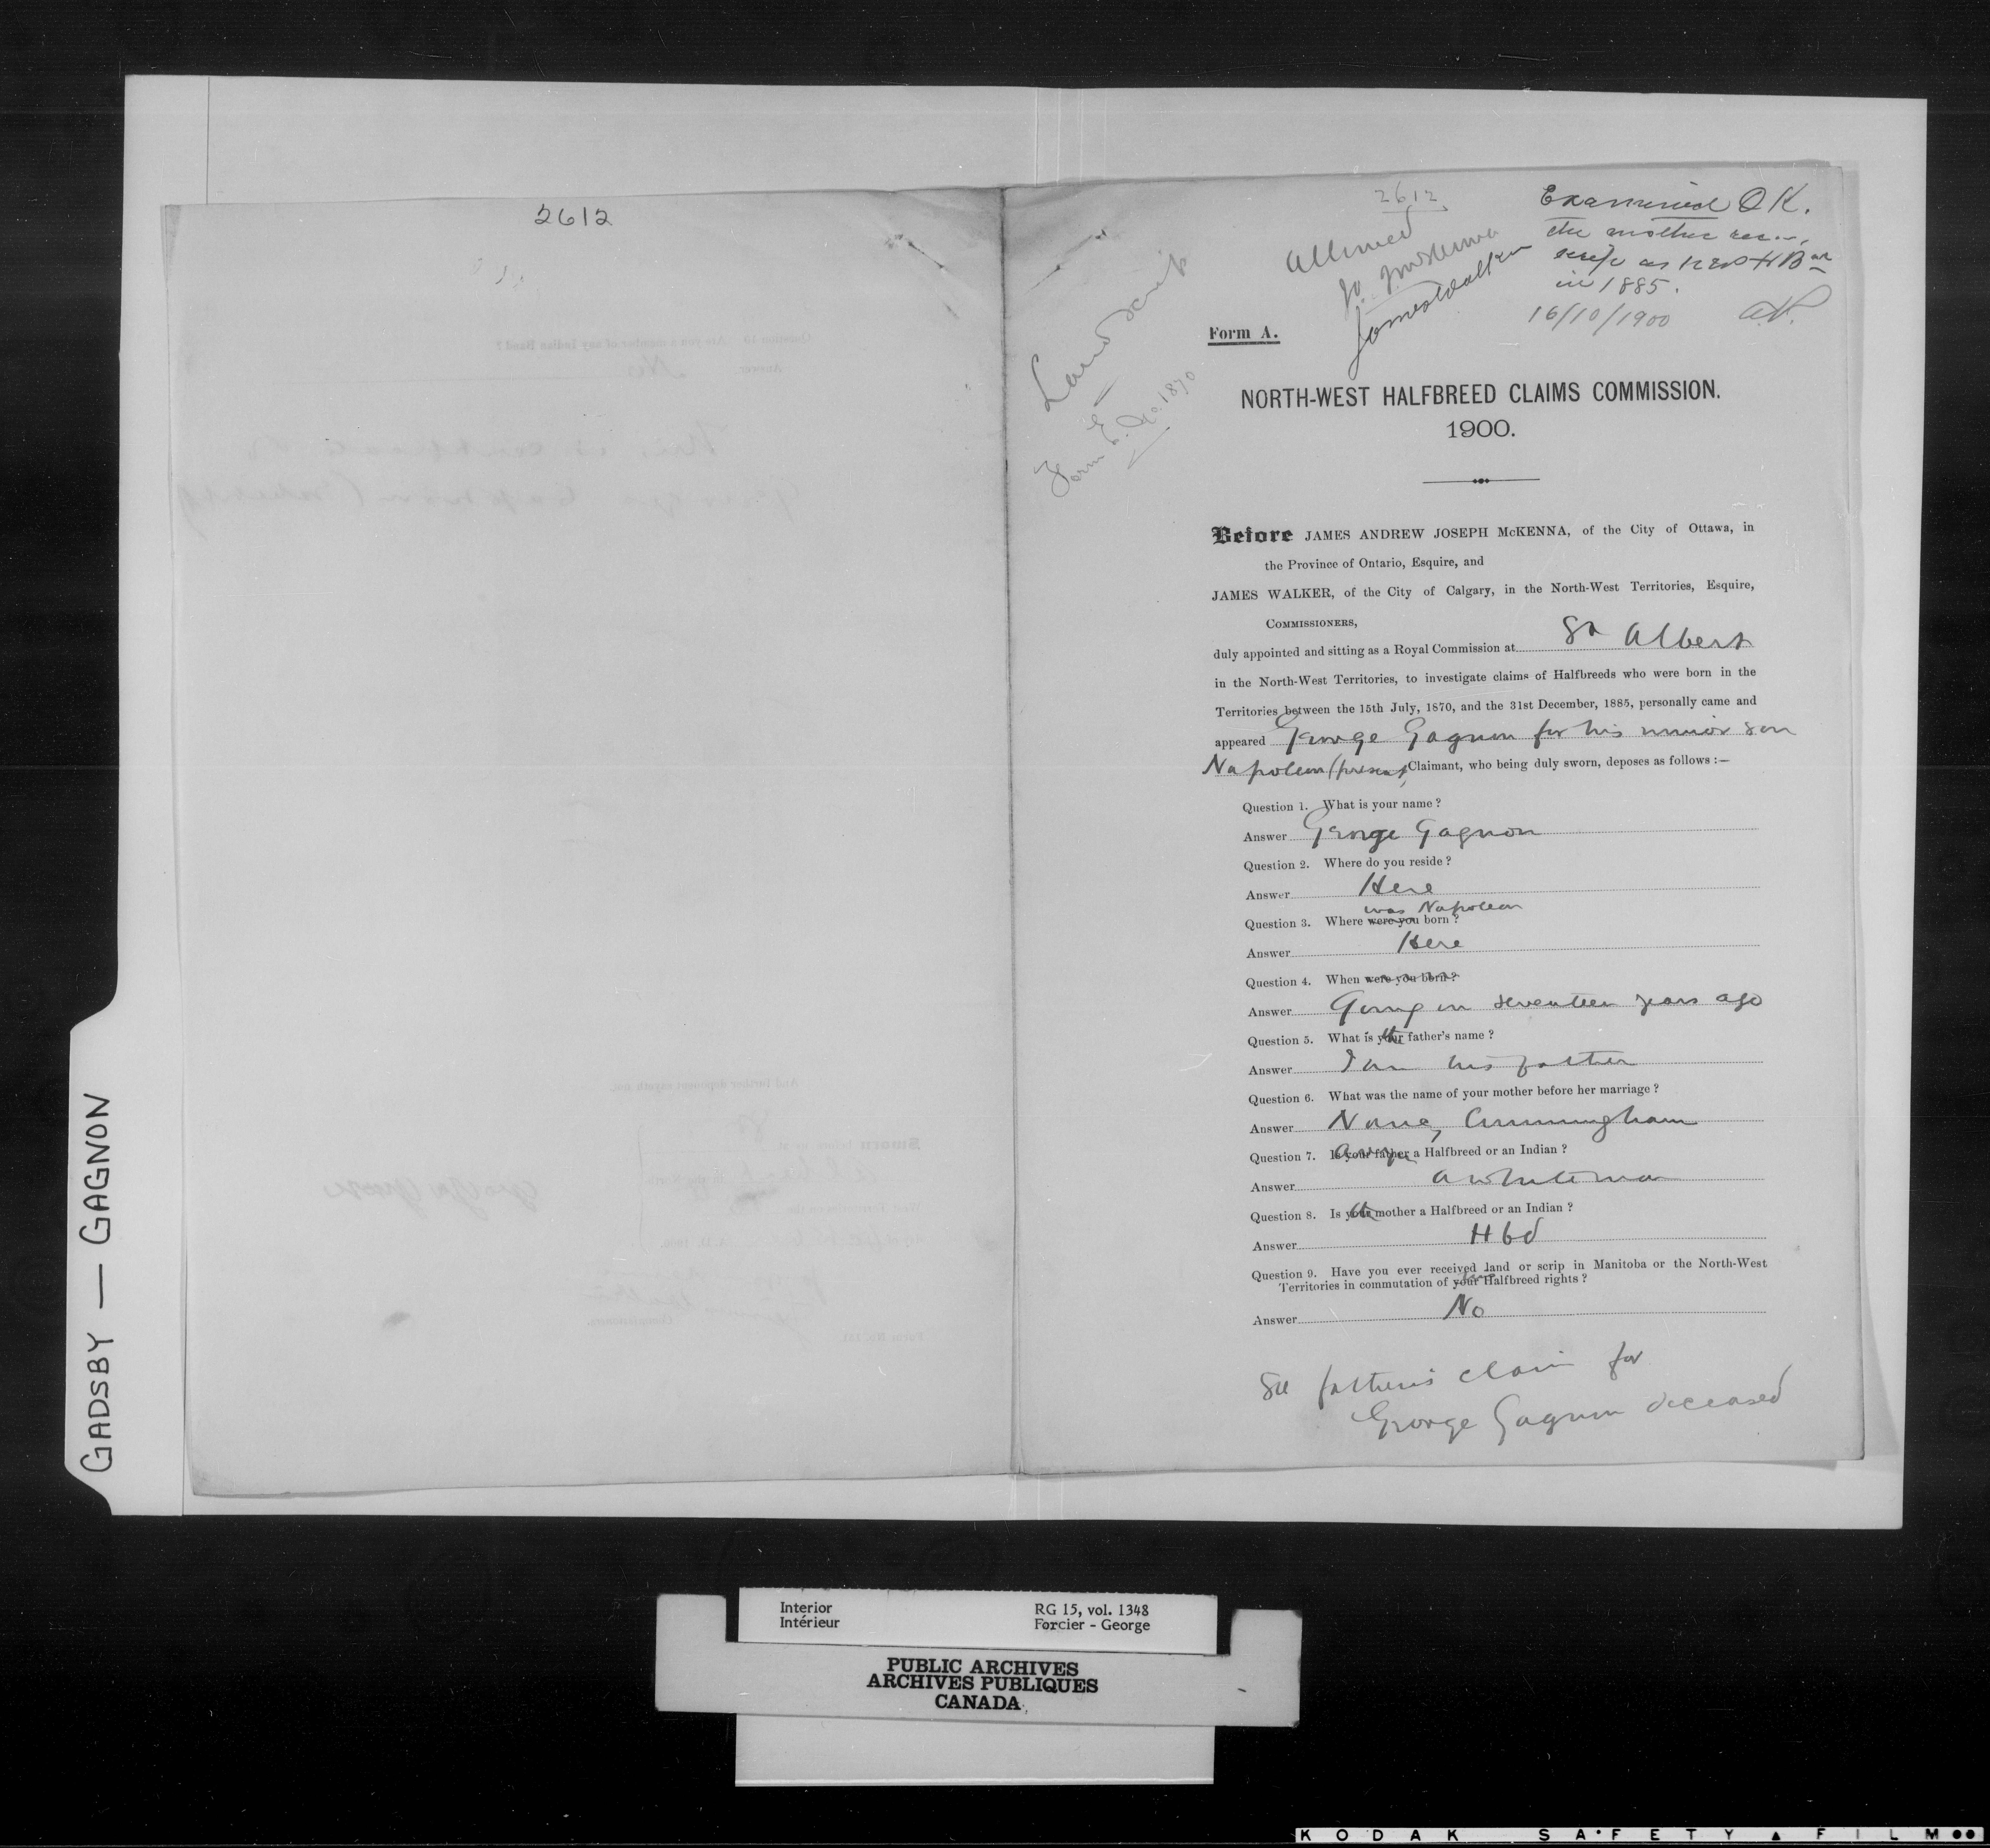 2612
GADSBY — GAGNON
2612
Allowed
James Walker
Examined OK.
the mother
scrip as HB
in 1885.
16/10/1900
Land Scrip
Form E. No. 1870
Form A.
NORTH-WEST HALFBREED CLAIMS COMMISSION.
1900.
Before JAMES ANDREW JOSEPH McKENNA, of the City of Ottawa, in
the Province of Ontario, Esquire, and
JAMES WALKER, of the City of Calgary, in the North-West Territories, Esquire,
COMMISSIONERS,
duly appointed and sitting as a Royal Commission at St Albert
in the North-West Territories, to investigate claims of Halfbreeds who were born in the
Territories between the 15th July, 1870, and the 31st December, 1885, personally came and
appeared George Gagnon for his minor son
Napoleon (present) Claimant, who being duly sworn, deposes as follows :—
Question 1. What is your name ?
Answer George Gagnon
Question 2. Where do you reside ?
Answer Here
was Napoleon
Question 3. Where were you born ?
Answer Here
Question 4. When were you born ?
Answer Going on seventeen years ago
Question 5. What is your the father's name ?
Answer I am his father
Question 6. What was the name of your mother before her marriage ?
Answer Nancy Cunningham
Question 7. Is your father Are you a Halfbreed or an Indian ?
Answer a whiteman
Question 8. Is your the mother a Halfbreed or an Indian ?
Answer Hbd
Question 9. Have you ever received land or scrip in Manitoba or the North-West
Territories in commutation of your Halfbreed rights ?
Answer No
See father's claim for
George Gagnon deceased
Interior
Intérieur
RG 15, vol. 1348
Forcier - George
PUBLIC ARCHIVES
ARCHIVES PUBLIQUES
CANADA
KODAK SAFETY FILM